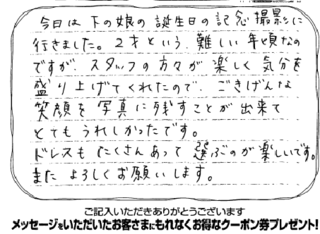 今日は下の娘の誕生日の記念撮影に
行きました。2才という、難しい年頃なの
ですが、スタッフの方々が楽しく気分を
盛り上げてくれたので、ごきげんな
笑顔を写真に残すことが出来て
とてもうれしかったです。
ドレスもたくさんあって選ぶのが楽しいです。
またよろしくお願いします。
ご記入いただきありがとうございます
メッセージをいただいたお客さまにもれなくお得なクーポン券プレゼント!